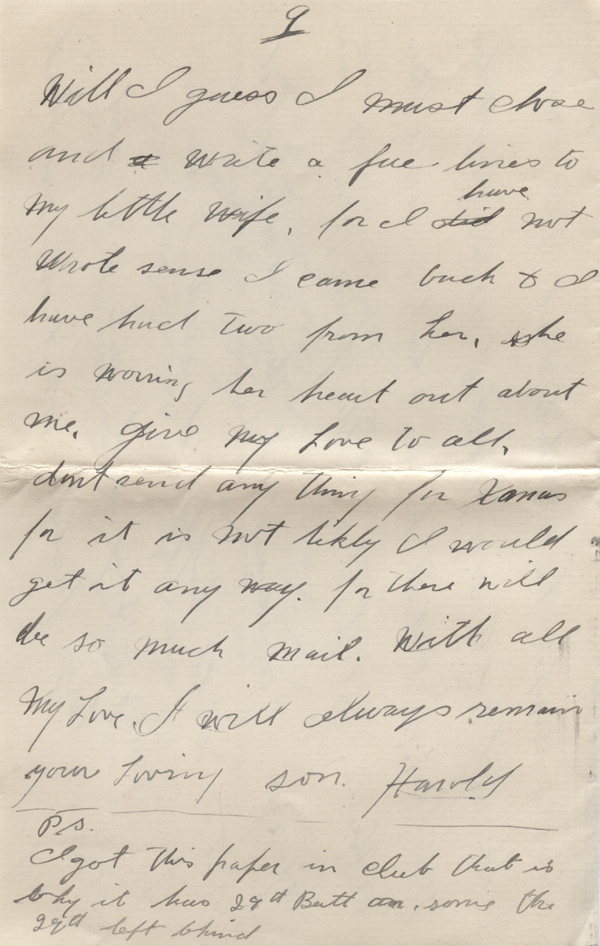 9
Will I guess I must close
and a write a fue lines to
my little wife, for I did have not
wrote sense I came back & I
have had two from her, she
is worring her heart out about
me, give my Love to all,
dont send any thing for Xmas
for it is not likly I would
get it any way. for there will
be so much mail. With all
my Love. I will always remain
your loving son. Harold
P.S.
I got this paper in club that is
why it has 29th Batt on, some the
29th left behind